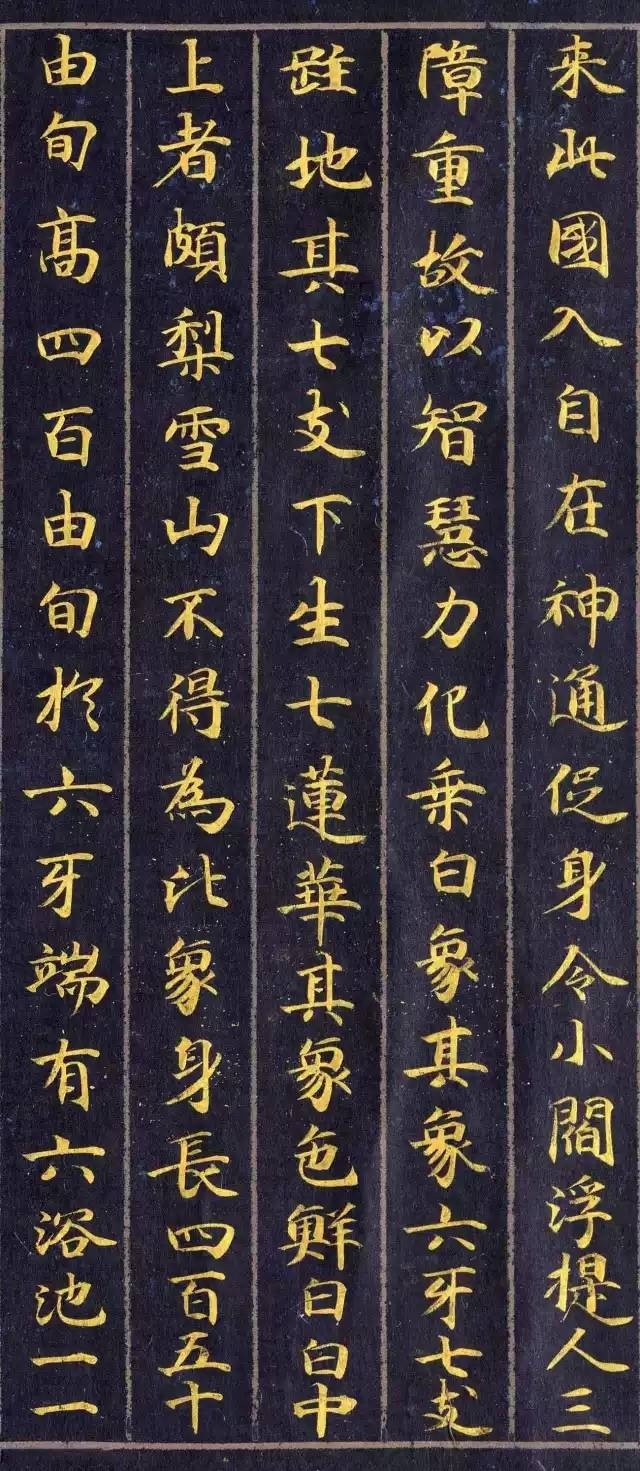 来此國入自在神通促身令小閻浮提人三
障重故以智慧力化乗白象其象六牙七支
跓地其七支下生七蓮華其象色鮮白白中
上者頗梨雪山不得為比象身長四百五十
由旬髙四百由旬於六牙端有六浴池一一